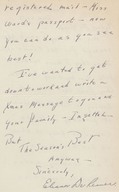 registered mail - Miss
Words passport - now
you can do as you see
best!
I've wanted to get
down to work with -
Xmas Message to you and
your Family - Together
But The Season's Best
Anyway -
Sincerely,